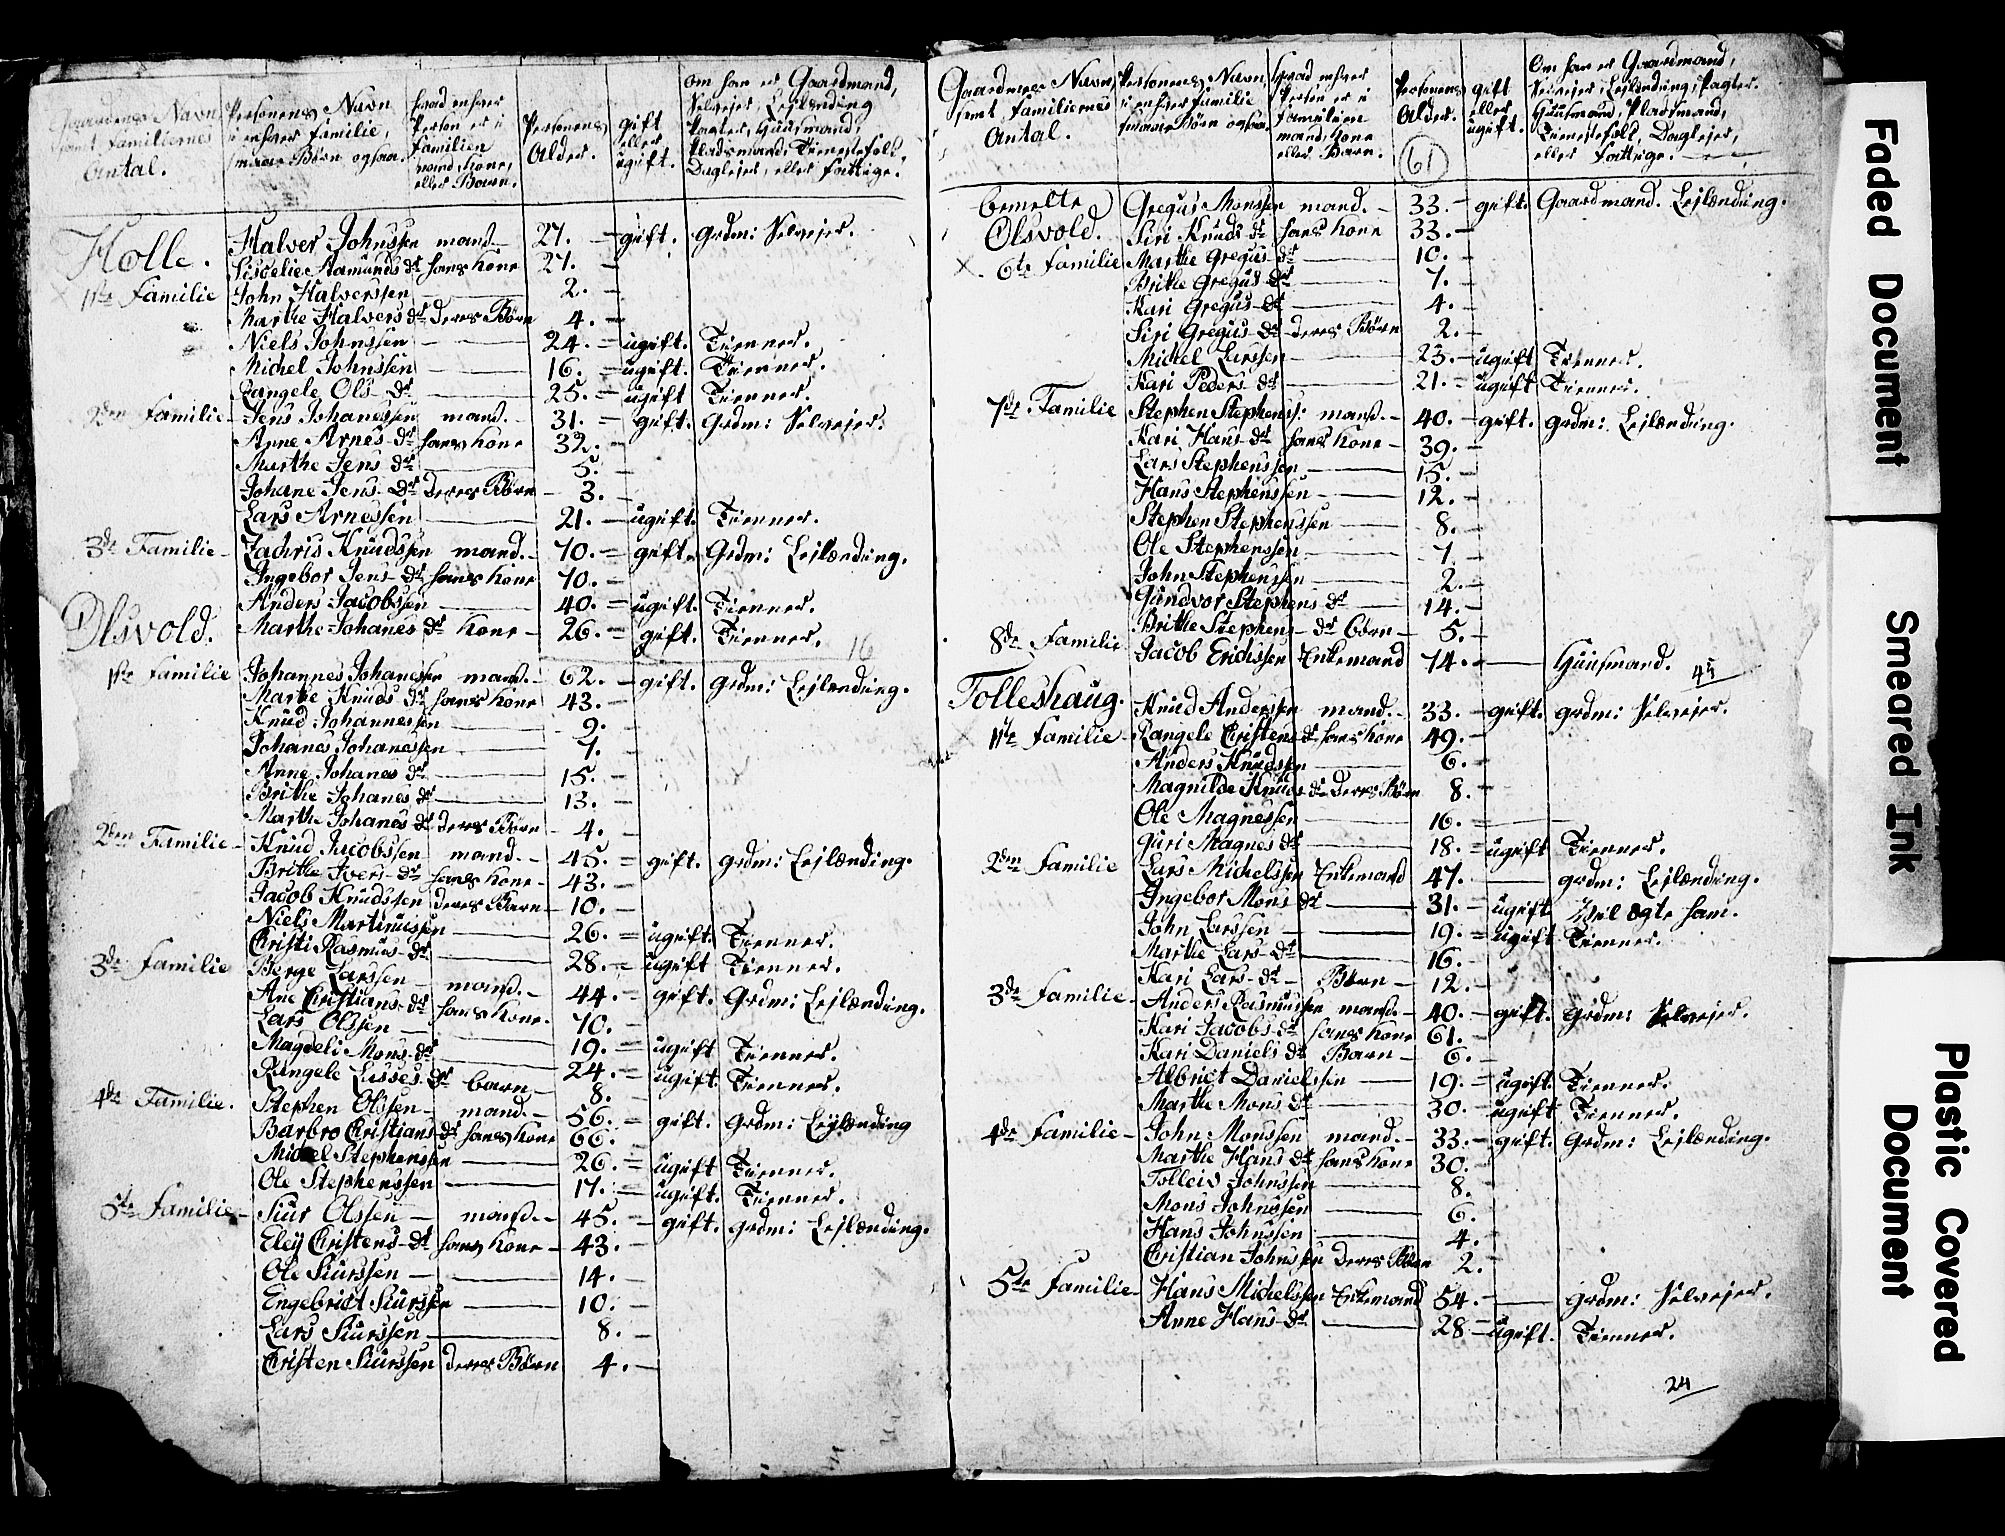 Gaardens Navn samt familiernes Antal. | Personens Navn i enhver familie, smaae Børn ogsaa. | hvad enhver Person er i familien mand, kone, eller Barn. | Personens Alder. | gift eller ugift. | om han er Gaardmand, Selvejer, Lejlænding Pagter, Huusmand, Pladsmand, Tienestefolk, Daglejer, eller fattige.
Holle. Halver Johnssen mand 27. gift. grdm: Selvejer.
Aamunds dr hans kone 27.
1ste Familie John Halverssen 2.
Marthe Halvers dr deres Børn 4.
Niels Johnssen 24. ugift. Tienner.
Michel Johnssen 16. ugift. Tienner.
Rangele Ols dr 25. ugift Tienner.
2den Familie Jens Johanessen mand. 31. gift. Grdm: Selvejer.
Anne Arnes dr hans kone 32.
Marthe Jens dr 5.
Johane Jens dr deres Børn 3.
Lars Arnessen 21. ugift. Tienner.
3de Familie Zachris Knudssen mand. 70. gift. Grdm: Lejlænding.
Ingebor Jens dr hans kone 70.
Anders Jacobssen 40. ugift. Tienner.
Olsvold. Marthe Johanes dr kone 26. gift. Tienner. 16
1ste Familie Johannes Johanessen mand. 62. gift. grdm: Lejlænding.
Marthe Knuds dr hans kone 43.
Knud Johannessen 9.
Johanes Johanessen 7.
Anne Johanes dr 15.
Brithe Johanes dr 13.
Marthe Johanes dr deres Børn 4.
2den Familie Knud Jacobssen mand. 45. gift. grdm: Lejlænding.
Brithe Ivers dr hans kone 43.
Jacob Knudssen deres Barn 10.
Niels Martinussen 26. ugift. Tienner.
Christi Rasmus dr 28. ugift Tienner.
3de familie Børge Larssen mand. 44. gift. Grdm: Lejlænding.
Ane Christians dr hans kone. 70.
Lars Olssen 19. ugift Tienner.
Magdeli Mons dr 24. ugift. Tienner.
Rangele Lasses dr barn 8.
4de Familie. Stephen Olssen mand. 56. gift. Grdm: Lejlænding
Barbro Christians dr hans kone 66.
Michel Stephenssen 26. ugift Tienner.
Ole Stephenssen 17. ugift. Tienner.
5te Familie Siur Olssen mand. 45. gift. grdm: Lejlænding.
Eley Christens dr hans kone 43.
Ole Siurssen 14.
Engebrict Siurssen 10.
Lars Siurssen 8.
Christen Siurssen deres Børn 4.
Gaardenes Navn, samt familiernes Antal. | Personens Navn, i enhver familie smaae Børn ogsaa. | hvad enhver Person er i familien mand, kone eller Barn. | Personens Alder. | gift eller ugift. | Om han er Gaardmand, Selvejer, Lejlænding, Pagter. Huusmand, Pladsmand, Tienestefolk, Daglejer, eller fattige.
61
bemelte Gregus Monssen mand. 33. gift. Gaardmand. Lejlænding.
Olsvold. Siri Knuds dr hans kone 33.
6te familie Marthe Gregus dr 10.
Brithe Gregus dr 7.
Kari Gregus dr 4.
Siri Gregus dr deres Børn 2.
Michel Larssen 23. ugift Tienner.
Kari Peders dr 21. ugift Tienner.
7de Familie Stephen Stephenss: mand. 40. gift. grdm: Lejlænding.
Kari Hans dr hans kone 39.
Lars Stephenssen 15.
Hans Stephenssen 12.
Stephen Stephenssen 8.
Ole Stephenssen 7
John Stephenssen 2.
Gundvor Stephens dr 14.
Brithe Stephens dr børn 5.
8de Familie Jacob Erichssen Enkemand 74. Huusmand. 45
Tolleshaug. Knud Anderssen mand. 33. gift. grdm: Selvejer.
1ste Familie Rangele Christens dr hans kone 49.
Anders Knudssen 6.
Magnilde Knuds dr deres Børn 8.
Ole Magnessen 16.
Guri Magnes dr 18. ugift Tienner.
2den Familie Lars Michelssen Enkemand 47. grdm: Lejlænding.
Ingebor Mons dr 31. ugift
John Larssen 19. ugift Tienner.
Marthe Lars dr 16.
Kari Lars dr Børn 12.
3de Familie Anders Rasmussen mand. 40. gift. Grdm: Selvejer.
Kari Jacobs dr hans kone 61.
Kari Daniels dr Barn 6.
Albrict Danielssen 19. ugift. Tienner.
Marthe Mons dr 30. ugift Tienner.
4de Familie John Monssen mand. 33. gift. Grdm: Lejlænding.
Marthe Hans dr hans kone 30.
Tolleiv Johnssen 8.
Mons Johnssen 6.
Hans Johnssen 4.
Christian Johnssen deres Børn 2.
5te Familie Hans Michelssen Enkemand 54. grdm: Selvejer.
Anne Hans dr 28 ugift. Tienner.
24
Faded Document
Smeared Ink
Plastic Covered
Document